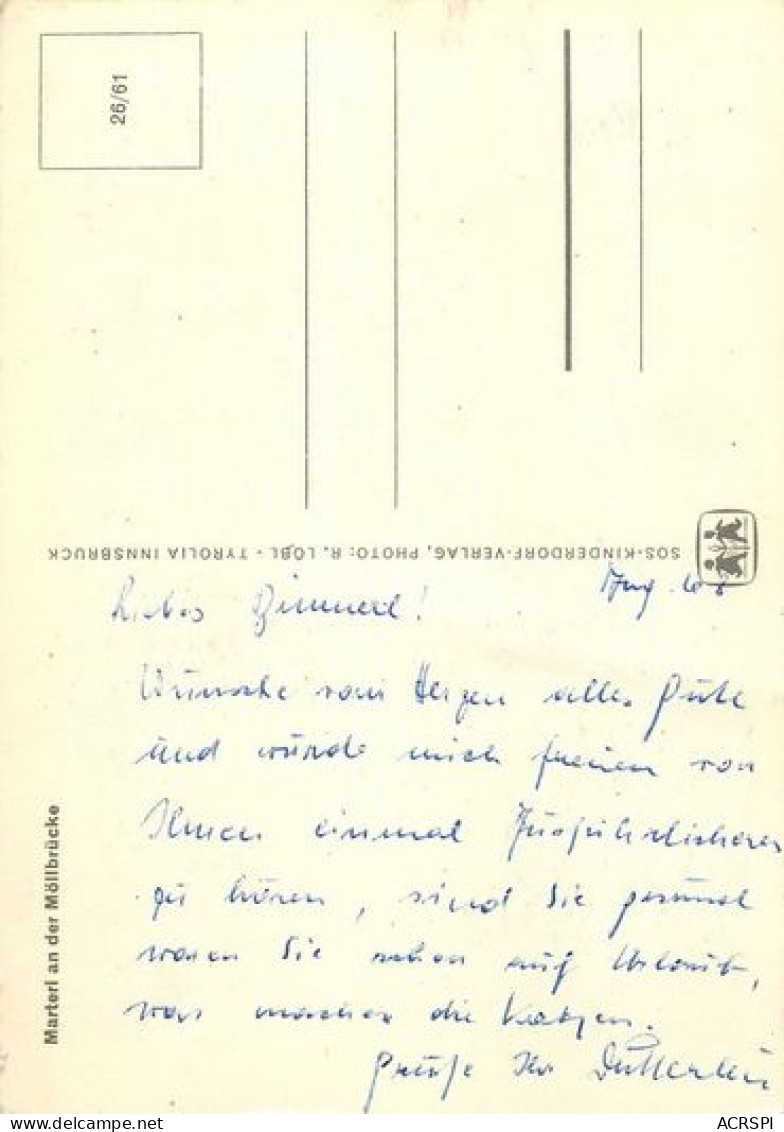 26/61
SOS-KINDERDORF-VERLAG, PHOTO: R. LÖBL - TYROLIA INNSBRUCK
Marterl an der Möllbrücke
Liebes
Wünsche vom Herzen alles Gute
und würde mich freuen von
Ihnen einmal Ausführlicheres
zu hören, sind Sie gesund
waren Sie schon auf Urlaub,
was machen die Katzen.
Grüße Ihr
delcampe.net
ACRSPI